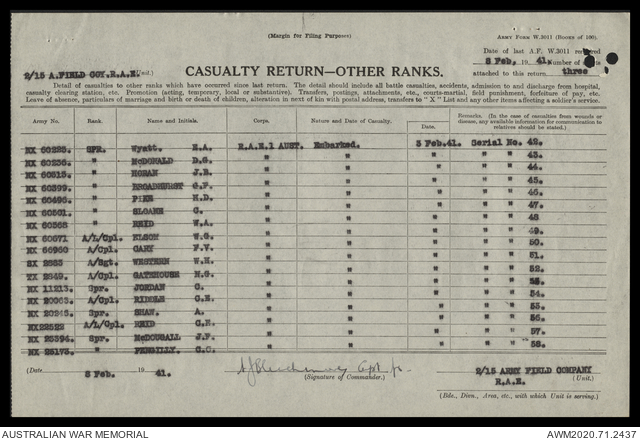 (Margin for Filing Purposes)
ARMY FORM W.3011 (BOOKS OF 100).
Date of last A.F. W.3011
8 Feb, 19 41. Number of
2/15 A.FIELD COY.R.A.E. (Unit.)
CASUALTY RETURN—OTHER RANKS.
attached to this return three
Detail of casualties to other ranks which have occurred since last return. The detail should include all battle casualties, accidents, admission to and discharge from hospital,
casualty clearing station, etc. Promotion (acting, temporary, local or substantive). Transfers, postings, attachments, etc., courts-martial, field punishment, forfeiture of pay, etc.
Leave of absence, particulars of marriage and birth or death of children, alteration in next of kin with postal address, transfers to "X" List and any other items affecting a soldier's service.
Army No. Rank. Name and Initials. Corps. Nature and Date of Casualty. Date. Remarks. (In the case of casualties from wounds or disease, any available information for communication to relatives should be stated.)
SPR. Wyatt. R.A.E. 1 AUST. Embarked. 3 Feb.41. Serial No. 42.
NX 60236. " McDONALD D.G. " " " " " 43.
" " " " " 44.
NX 60399. " BROADHURST G.F. " " " " " 45.
NX 60495. " H.D. " " " " " 46.
NX 60501. " SLOANE C. " " " " " 47.
NX 60568 " REID W.A. " " " " " 48
NX 60671 A/L/Cpl. W.G. " " " " " 49.
NX 66960 A/Cpl. CARY F.V. " " " " " 50.
SX 2885 A/Sgt. WESTERN W.H. " " " " " 51.
TX 2849. A/Cpl. GATEHOUSE " " " " " 52.
NX 11213. Spr. JORDAN C. " " " " "
A/Cpl. RIDDLE " " " " " 54.
Spr. SHAW. A. " " " " " 55.
NX22522 A/L/Cpl. REID " " " " " 56.
Spr. McDOUGALL J.F. " " " " " 57.
NX 25173. " " " " " " 58.
(Date 8 Feb. 19 41. (Signature of Commander.) 2/15 ARMY FIELD COMPANY
R.A.E. (Unit.)
(Bde., Divn., Area, etc., with which Unit is serving.)
AUSTRALIAN WAR MEMORIAL AWM2020.71.2437